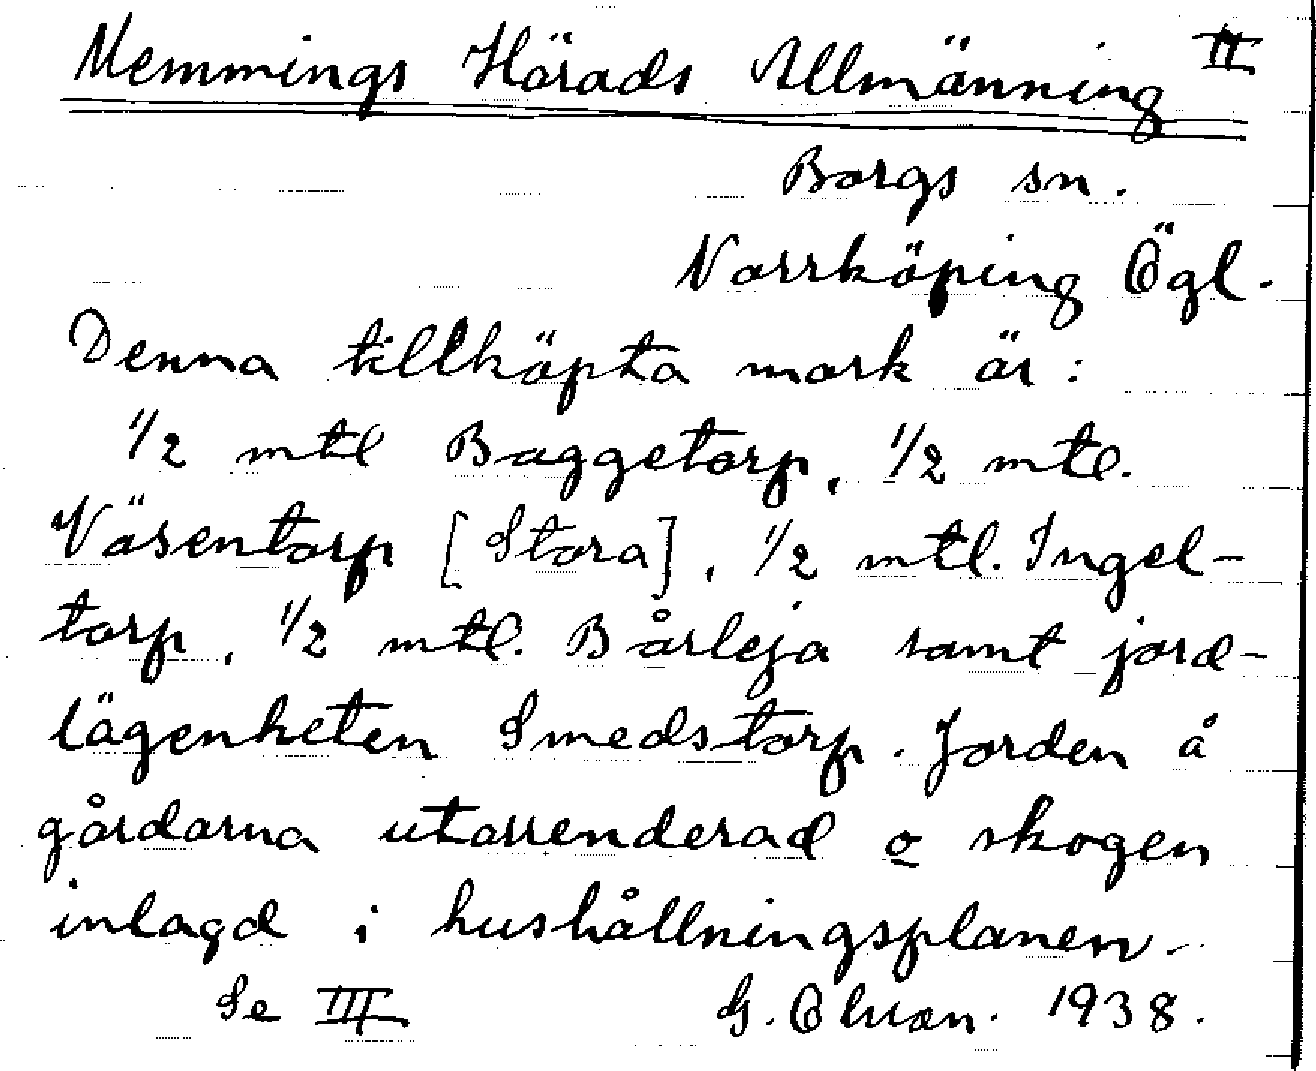 Memmings Härads Allmänning II
Borgs sn.
Norrköping Ögl.
Denna tillköpta mark är:
1/2 mtl Baggetorp, 1/2 mtl.
Väsentorp [Stora], 1/2 mtl. Ingel-
torp, 1/2 mtl. Bårleja samt jord-
lägenheten Smedstorp. Jorden å
gårdarna utarrenderad o skogen
inlagd i hushållningsplanen.
Se III G. 1938.